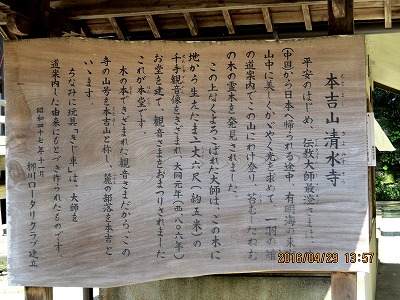 本吉山 清水寺
平安のはじめ、伝教大師最澄さまは、
中国から日本へ帰られる途中、有明海の東の
山中に美しくかがやく光を求めて、一羽の雉
の道案内でこの山にわけ登り、苔むしたねむ
の木の霊木を発見されました。
この上なくよろこばれた大師は、この木に
地から生えたまま一丈六尺(約五米)の
千手観音像をきざまれ、大同元年(西八〇六年)
お堂を建て、観音さまをおまつりされました
これが本堂です。
木の本できざまれた観音さまだから、この
寺の山号を本吉山と称し、麓の部落を本吉と
いゝます。
ちなみに玩具「きじ車」は、大師を
道案内した由来にもとづき作られたものです。
昭和四十七年十一月
柳川ロータリークラブ建立
2016/04/29 13:57